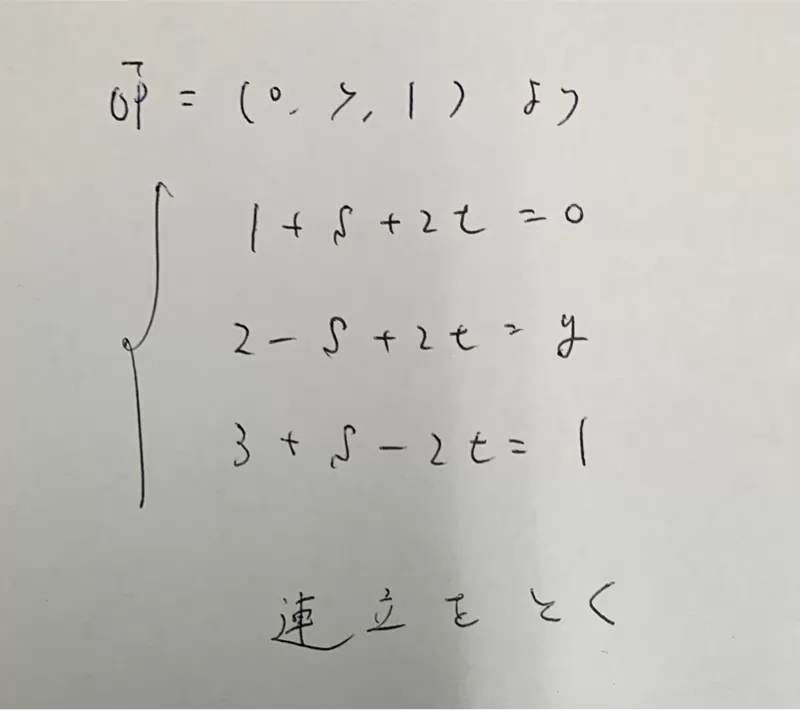 OP→ = (0, y, 1) より
1 + s + 2t = 0
2 - s + 2t = y
3 + s - 2t = 1
連立をとく